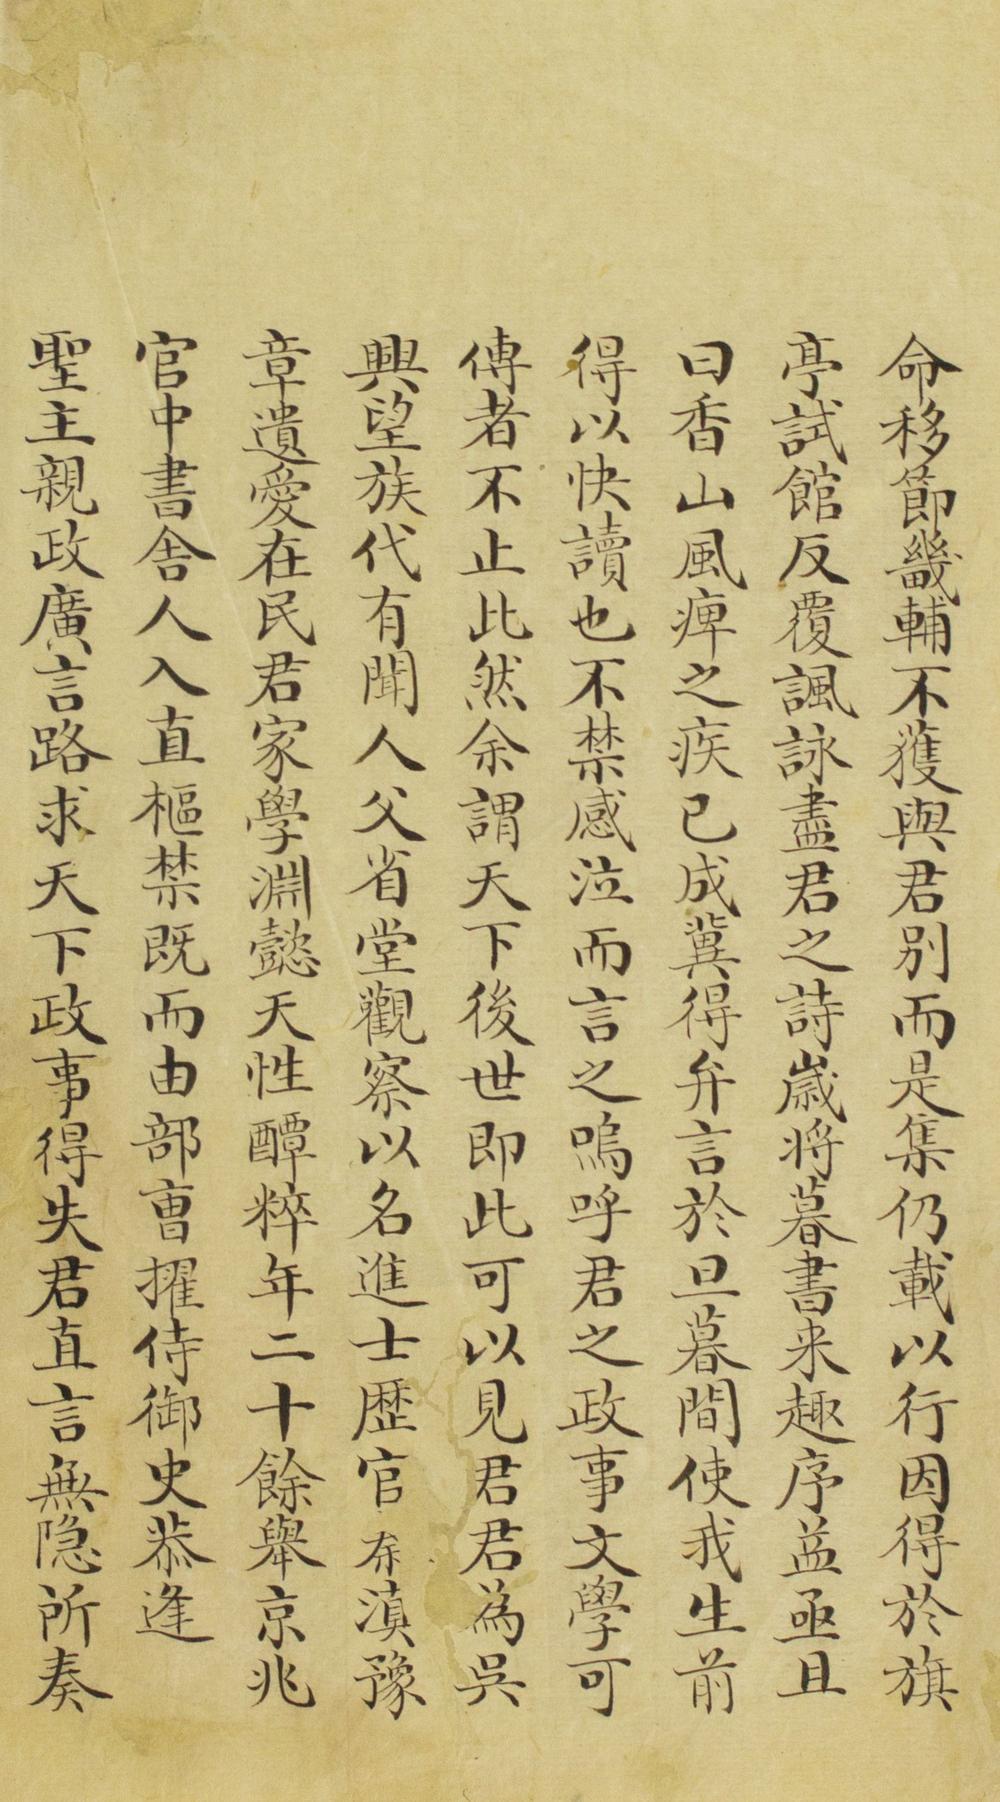 命移節畿輔不獲與君别而是集仍載以行因得於旗
亭試館反覆諷詠盡君之詩嵗将暮書来趣序益亟且
曰香山風痺之疾已成冀得弁言於旦暮間使我生前
得以快讀也不禁感泣而言之嗚呼君之政事文學可
傳者不止此然余謂天下後世即此可以見君君為吳
興望族代有聞人父省堂觀察以名進士歴官滇豫
章遺愛在民君家學淵懿天性醰粹年二十餘舉京兆
官中書舎人入直樞禁既而由部曹擢侍御史恭逢
聖主親政廣言路求天下政事得失君直言無隐所奏